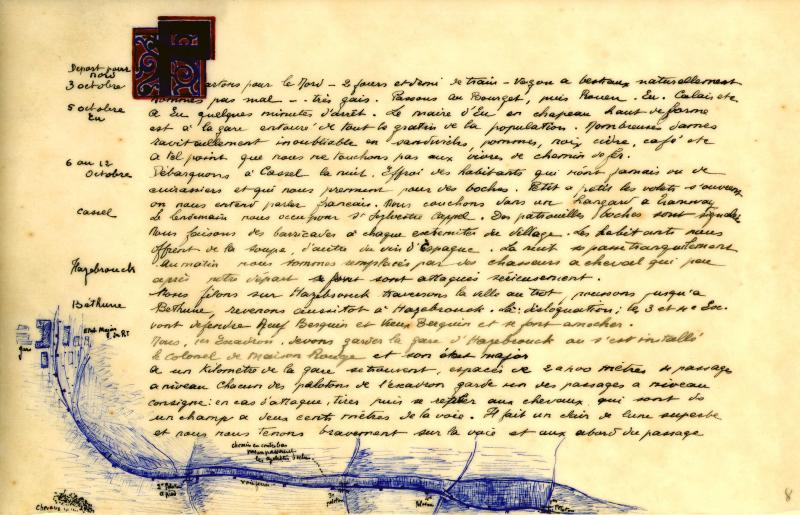 Depart pour
nord
3 octobre
5 octobre
Eu
6 au 12
Octobre
Cassel
Hazebrouck
Béthune
Partons pour le Nord - 2 jours et demi de train - Vagon a bestiaux naturellement
sommes pas mal - très gais. Passons au Bourget, puis Rouen. Eu. Calais etc
A Eu quelques minutes d'arrêt. Le maire d'Eu en chapeau haut de forme
est à la gare entouré de tout le gratin de la population. Nombreuses dames
ravitaillement inoubliable en sandwichs, pommes, noix, cidre, café etc
A tel point que nous ne touchons pas aux vivres de chemin de fer.
Débarquons à Cassel la nuit. Effroi des habitants qui n'ont jamais vu de
cuirassiers et qui nous prennent pour des boches. Petit a petit les volets s'ouvrent
on nous entend parler français. Nous couchons dans un hangard a tramway
Le lendemain nous occupons St Sylvestre Cappel. Des patrouilles boches sont signalées
Nous faisons des barricades à chaque extremités du village. Les habitants nous
offrent de la soupe, d'autre du vin d'Espagne. La nuit se passe tranquillement
Au matin nous sommes remplacés par des chasseurs a cheval qui peu
après notre départ se font sont attaqués sérieusement.
Nous filons sur Hazebrouck traversons la ville au trot, poussons jusqu'a
Béthune, revenons aussitot à Hazebrouck. Là: disloquation; le 3 et 4e Esc.
vont defendre Neuf Berquin et Vieux Berquin et se font amocher.
Nous, 1er Escadron, devons garder la gare d'Hazebrouck ou s'est installé
le Colonel de Maison Rouge et son état major
A un Kilomètre de la gare se trouvent, espacés de 2 a 400 mètres 4 passages
a niveau Chacun des pelotons de l'escadron garde un des passages a niveau
consigne: en cas d'attaque, tirer puis se replier aux chevaux qui sont ds
un champ a deux cents mètres de la voie. Il fait un clair de lune superbe
et nous nous tenons bravement sur la voie et aux abord du passage
gare
Etat Major
chemin en contrebas
2e Peloton
a pied
peloton
Peloton
Chevaux
8